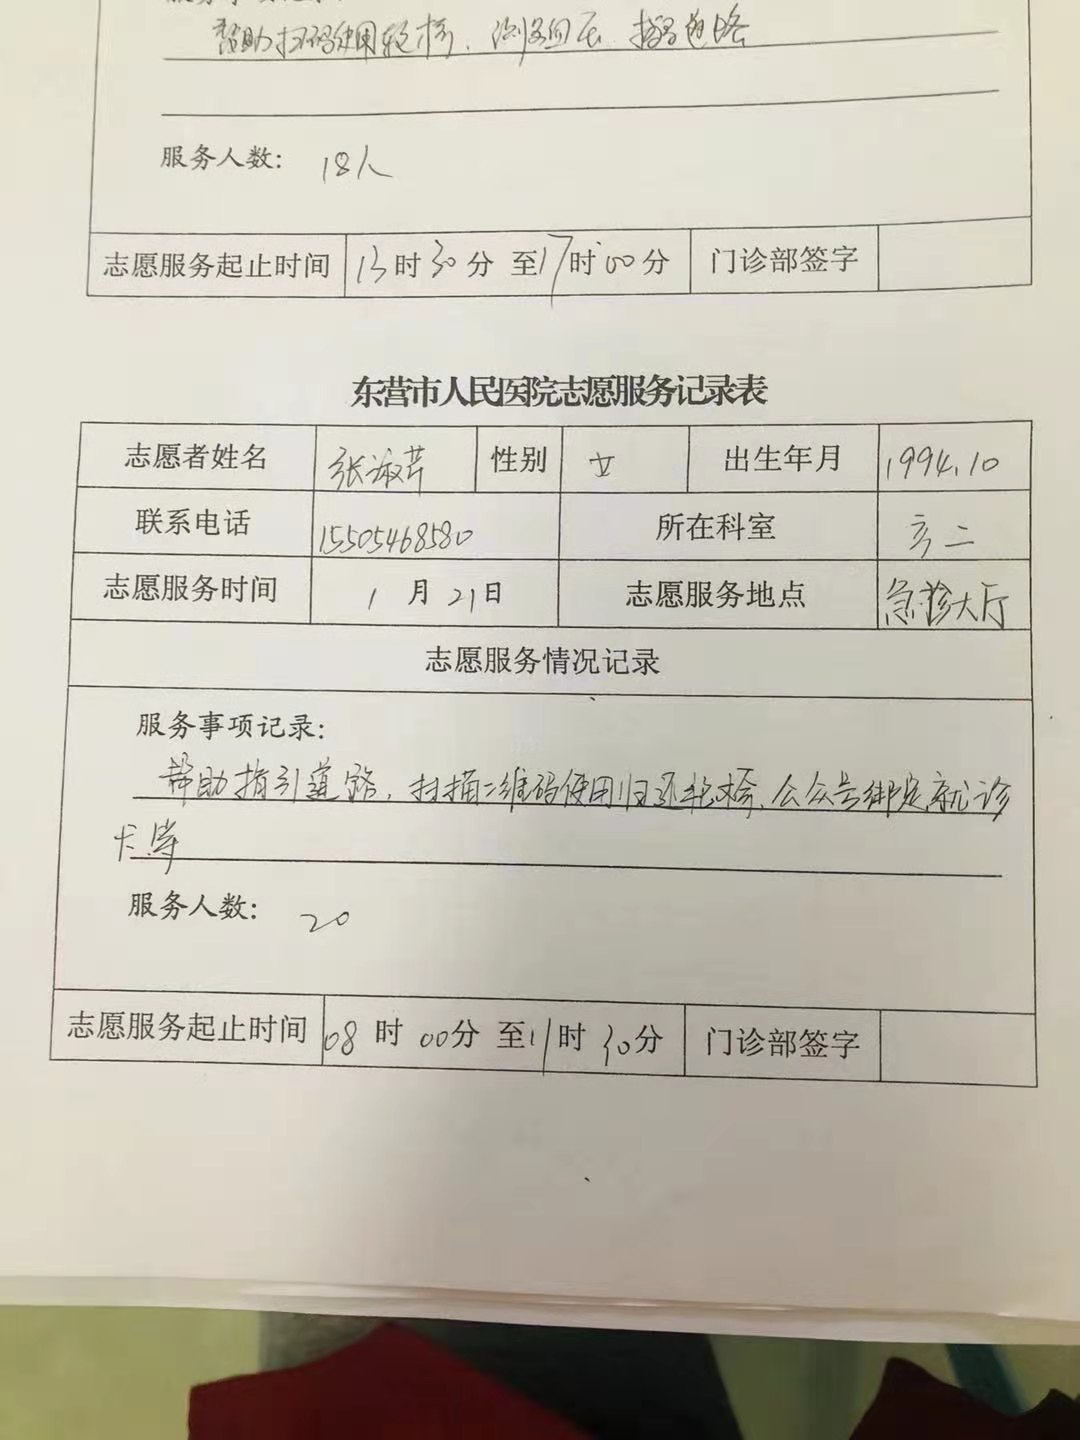 帮助扫码使用轮椅、测量血压、指路
服务人数: 18人
志愿服务起止时间 13时30分 至17时00分 门诊部签字
东营市人民医院志愿服务记录表
志愿者姓名 张淑芹 性别 女 出生年月 1994.10
联系电话 15505468580 所在科室 二
志愿服务时间 1月21日 志愿服务地点 急诊大厅
志愿服务情况记录
服务事项记录:
帮助指引道路,扫描二维码使用归还轮椅、公众号绑定就诊
卡等
服务人数: 20
志愿服务起止时间 08时00分 至11时30分 门诊部签字